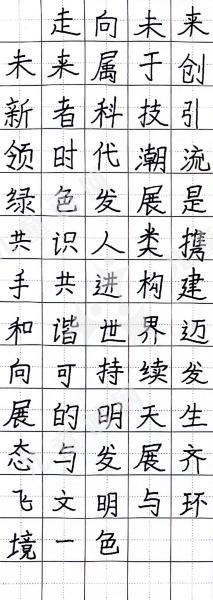 走向未来
未来属于创
新者科技引
领时代潮流
绿色发展是
共识人类携
手共进构建
和谐世界迈
向可持续发
展的明天生
态与发展齐
飞文明与环
境一色